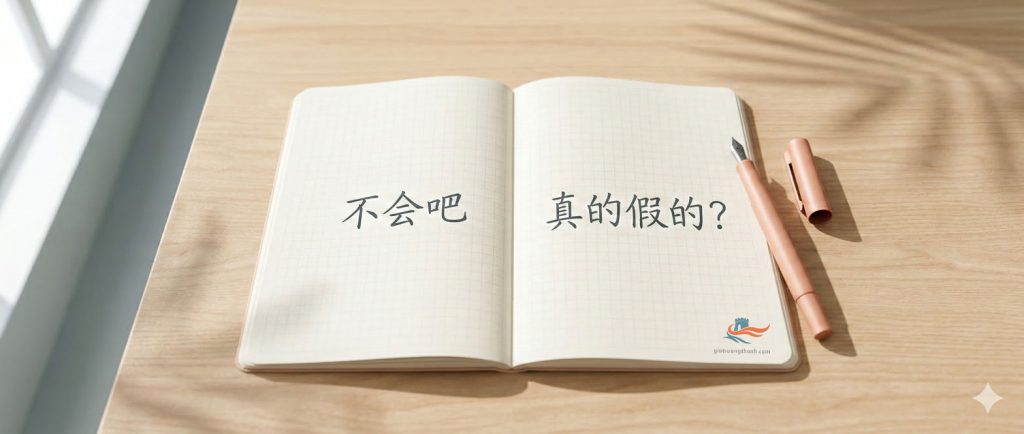 不会吧
真的假的?